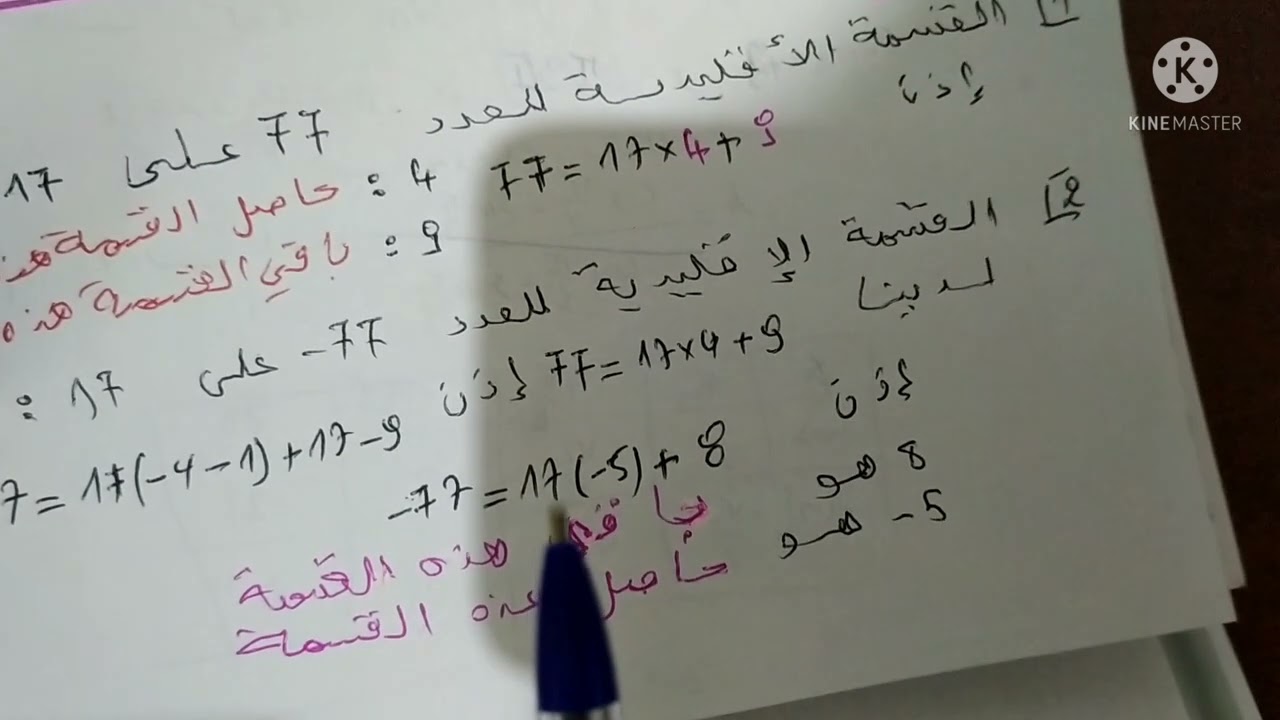 1 القسمة الأقليدسة للعدد 77 على 17
إذن 77 = 17 × 4 + 9
4 : حاصل القسمة هذه
9 : باقي القسمة هذه
2 القسمة الإقليدية للعدد 77- على 17 :
لدينا 77 = 17 × 4 + 9 إذن
7 = 17(-4 -1) + 17 - 9
إذن -77 = 17(-5) + 8
8 هو باقي هذه القسمة
-5 هو حاصل هذه القسمة
KINEMASTER